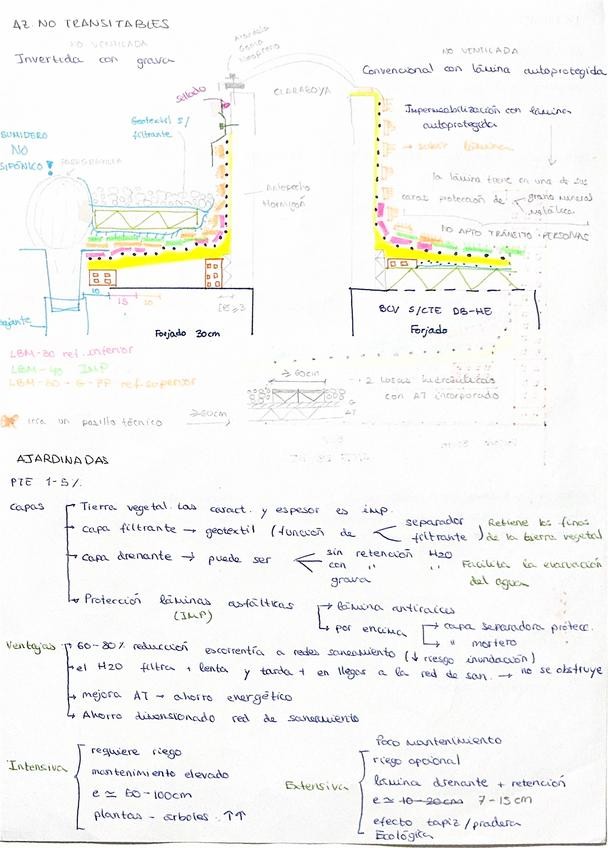 AZ. NO TRANSITABLES
NO VENTILADA
Invertida con grava
Neopreno
NO VENTILADA
Convencional con lámina autoprotegida
CLARABOYA
Sellado
Geotextil s/
filtrante
SUMIDERO
NO
SIFÓNICO
PARAGRAVILLA
Impermeabilización con lámina
autoprotegida
→ subir lámina
la lámina tiene en una de sus
caras protección de grano mineral
metálica
NO APTO TRÁNSITO PERSONAS
Antepecho
Hormigón
10
15
20
Bajante
Forjado 30cm
BCV S/CTE DB-HE
Forjado
LBM-30 ref. inferior
LBM-40 IMP
LBM-50-G-FP ref. superior
≥60cm
2 losas hidráulicas
con AT incorporado
G
AT
un pasillo técnico ≥60cm
AJARDINADAS
PTE 1-5%
capas
Tierra vegetal. Las caract. y espesor es imp.
capa filtrante → geotextil (función de separador
filtrante)
Retiene los finos
de la tierra vegetal
capa drenante → puede ser sin retención H2O
con " "
grava
Facilita la evacuación
del agua
Protección láminas asfálticas
(IMP)
lámina antiraíces
por encima capa separadora protecc.
" mortero
Ventajas
60-80% reducción escorrentía a redes saneamiento (↓ riesgo inundación)
el H2O filtra + lenta y tarda + en llegar a la red de san. → no se obstruye
mejora AT → ahorro energético
Ahorro dimensionado red de saneamiento
Intensiva
requiere riego
mantenimiento elevado
e ≃ 60-100cm
plantas - árboles ↑↑
Extensiva
Poco mantenimiento
riego opcional
lámina drenante + retención
e ≃ 10-20cm 7-15cm
efecto tapiz/pradera
Ecológica